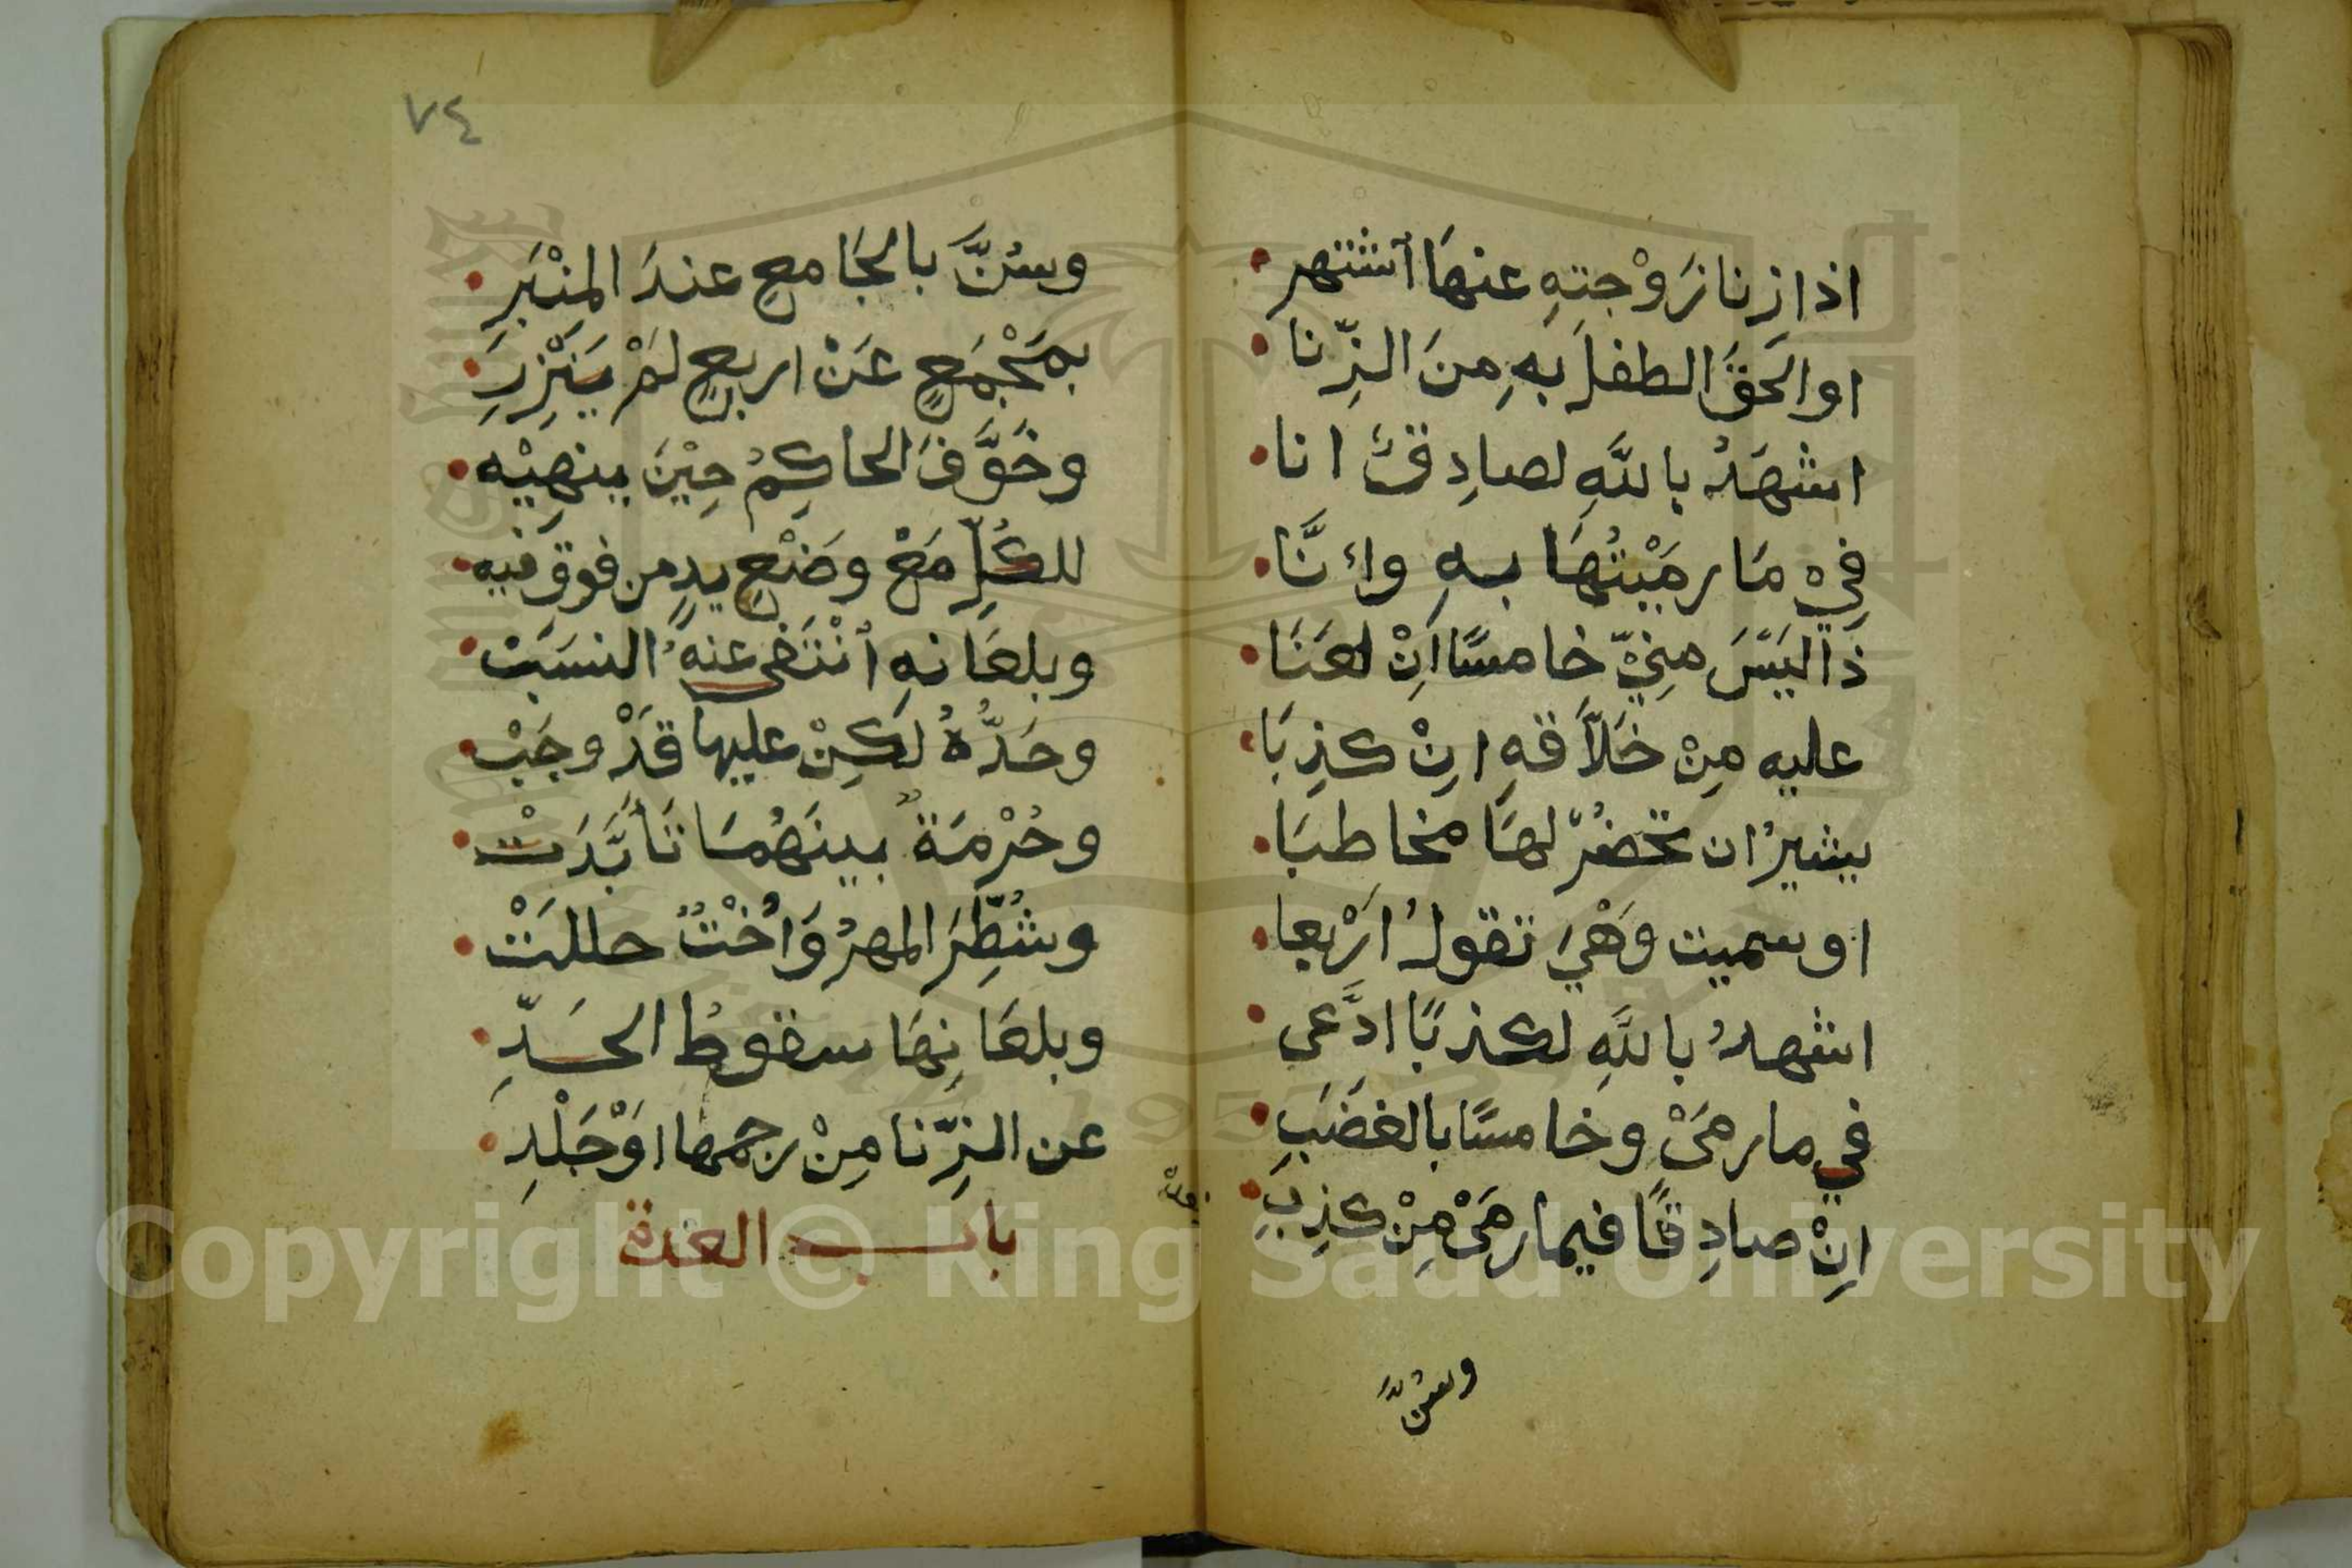 اذا زنا زَوْجتِهِ عنهَا اُشتهر
او الحَقَ الطفلَ بهِ مِنَ الزِّنا
اشهَدُ باللَّهِ لصادِقٌ انا
فِيْ مَا رمَيْتُهَا بهِ وانَّا
ذَا لَيْسَ مِنِّيْ خامسًا اَنْ لعَنَا
عليه مِنْ خَلاَّقهِ اِنْ كذِبَا
يشيرُ ان تحضُرْ لهَا مخاطبَا
او سميت وَهْيَ تقولُ اَرْبعا
اشهدُ باللَّهِ لكذبًا ادَّعى
في ما رمَىْ وخامسًا بالغضَبِ
اِنْ صادِقًا فيما رمَىْ مِنْ كذِبِ
وسُنَّ
٧٤
وسُنَّ بالجَامعِ عندَ المِنْبَرِ
بمَجْمَعٍ عَنْ اربعٍ لَمْ يَنْزِرِ
وخَوَّفَ الحاكِمُ حِيْنَ ينهِيْه
للكُلِّ مَعْ وضْعِ يدٍ من فوقِ فيه
وبلعَانهِ اُنْتَفى عنهُ النسَبْ
وحَدُّهُ لَكِنْ عليها قَدْ وجَبْ
وحُرْمَةٌ بينَهُمَا تَأَبَّدَتْ
وشُطِّرَ المهرُ وَاُخْتٌ حللَتْ
وبلعَانِهَا سقوطُ الحَدِّ
عن الزِّنا مِنْ رجمها اَوْ جَلْدِ
باب العدة